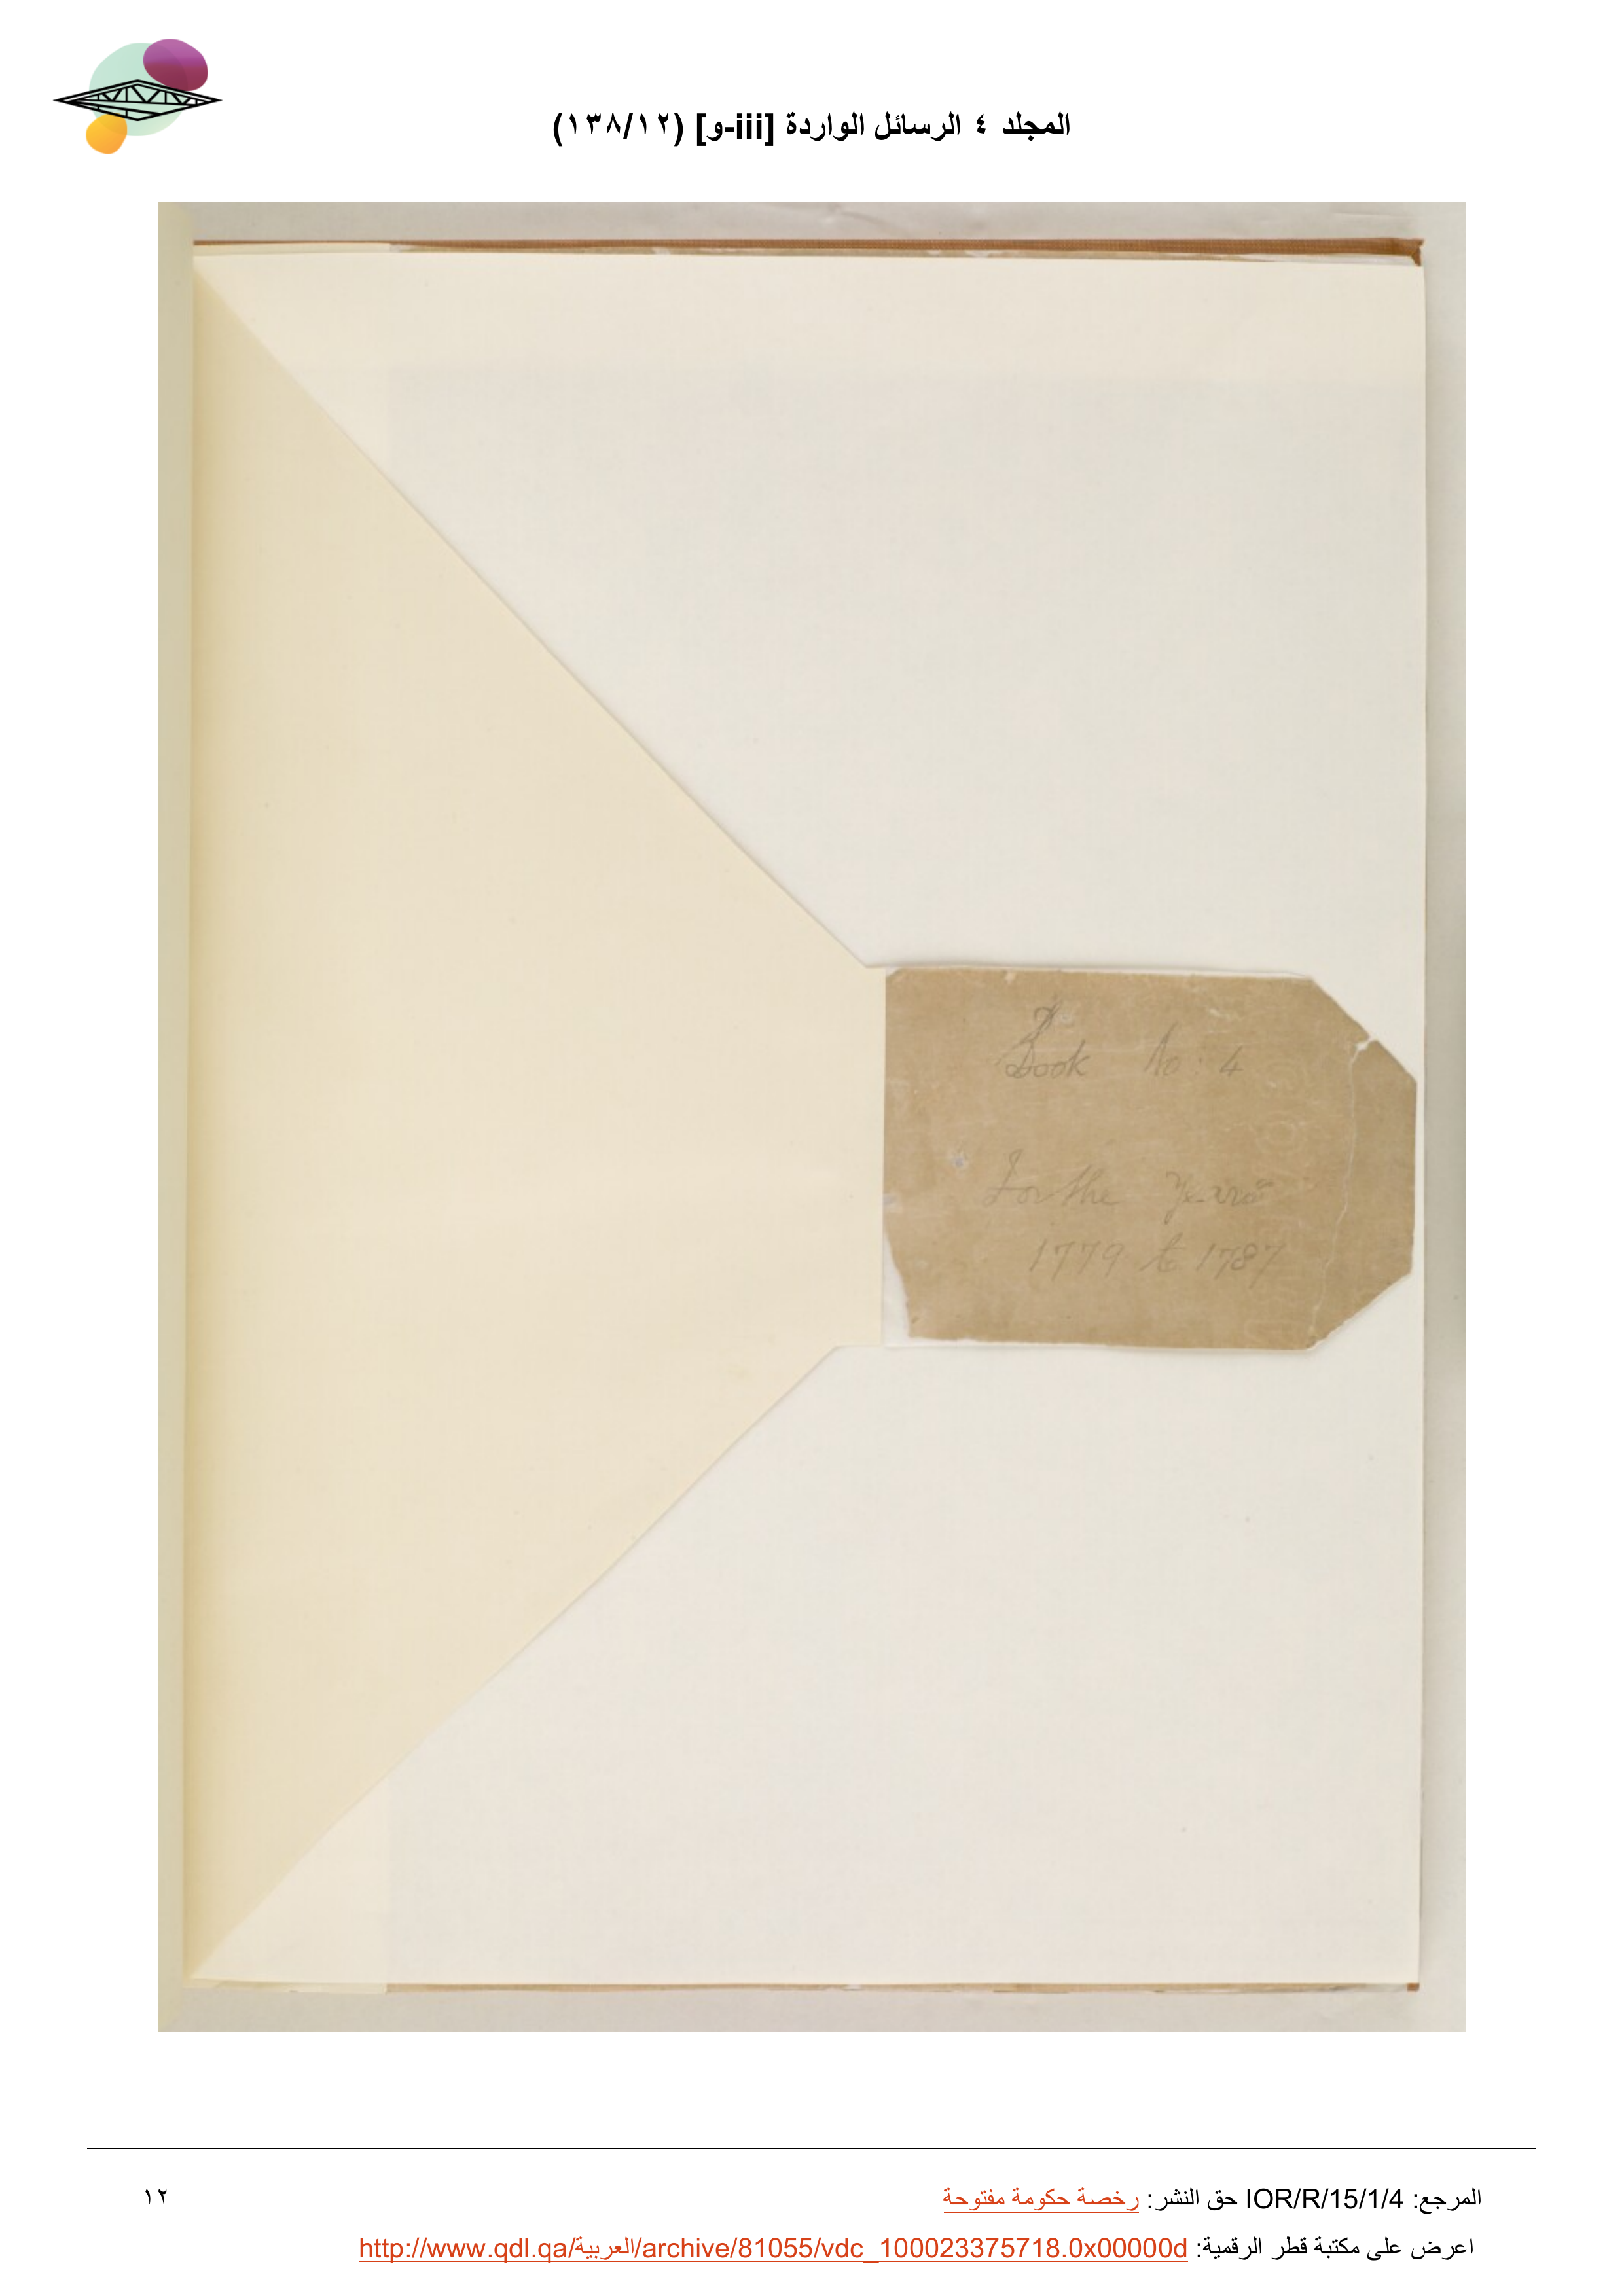 المجلد ٤ الرسائل الواردة [iii-و] (١٣٨/١٢)
Book No: 4
For the Years
1779 to 1787
المرجع: IOR/R/15/1/4 حق النشر: رخصة حكومة مفتوحة
١٢
اعرض على مكتبة قطر الرقمية: http://www.qdl.qa/العربية/archive/81055/vdc_100023375718.0x00000d